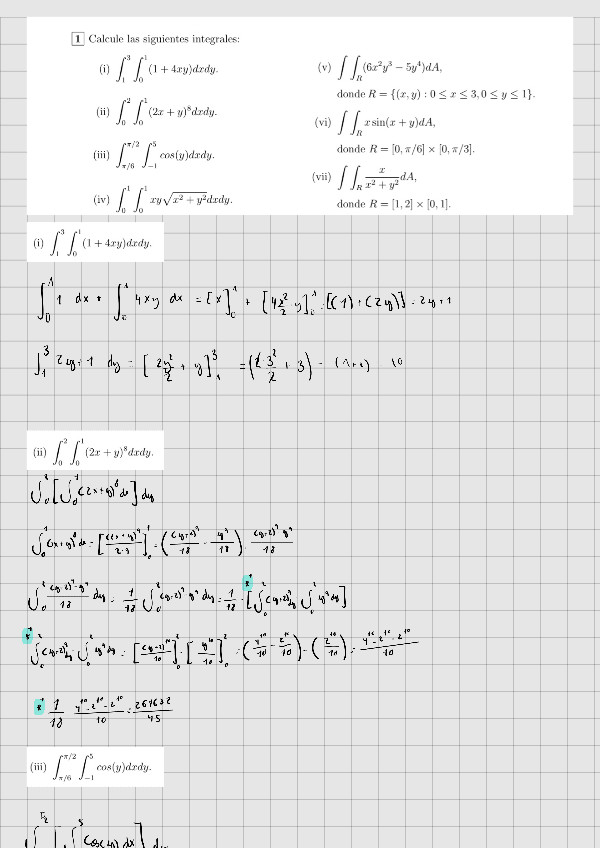 1 Calcule las siguientes integrales:
(i) ∫₁³ ∫₀¹ (1 + 4xy)dxdy.
(ii) ∫₀² ∫₀¹ (2x + y)⁸dxdy.
(iii) ∫_{π/6}^{π/2} ∫₋₁⁵ cos(y)dxdy.
(iv) ∫₀¹ ∫₀¹ xy√(x² + y²)dxdy.
(v) ∫∫_R (6x²y³ − 5y⁴)dA,
donde R = {(x, y) : 0 ≤ x ≤ 3, 0 ≤ y ≤ 1}.
(vi) ∫∫_R x sin(x + y)dA,
donde R = [0, π/6] × [0, π/3].
(vii) ∫∫_R x/(x² + y²) dA,
donde R = [1, 2] × [0, 1].
(i) ∫₁³ ∫₀¹ (1 + 4xy)dxdy.
∫₀¹ 1 dx + ∫₀¹ 4xy dx = [x]₀¹ + [4x²/2 · y]₀¹ = [(1) + (2y)] = 2y + 1
∫₁³ 2y + 1 dy = [2y²/2 + y]₁³ = (2·3²/2 + 3) − (1+1) = 10
(ii) ∫₀² ∫₀¹ (2x + y)⁸dxdy.
∫₀² [∫₀¹ (2x+y)⁸ dx] dy
∫₀¹ (2x+y)⁸ dx = [(2x+y)⁹/2·9]₀¹ = ((y+2)⁹/18 − y⁹/18) = (y+2)⁹-y⁹/18
∫₀² (y+2)⁹-y⁹/18 dy = 1/18 ∫₀² (y+2)⁹-y⁹ dy = 1/18 · [∫₀² (y+2)⁹dy - ∫₀² y⁹dy]
∫₀² (y+2)⁹dy - ∫₀² y⁹dy = [(y+2)¹⁰/10]₀² - [y¹⁰/10]₀² = (4¹⁰/10 - 2¹⁰/10) - (2¹⁰/10) = 4¹⁰-2¹⁰-2¹⁰/10
1/18 · 4¹⁰-2¹⁰-2¹⁰/10 = 261632/45
(iii) ∫_{π/6}^{π/2} ∫₋₁⁵ cos(y)dxdy.